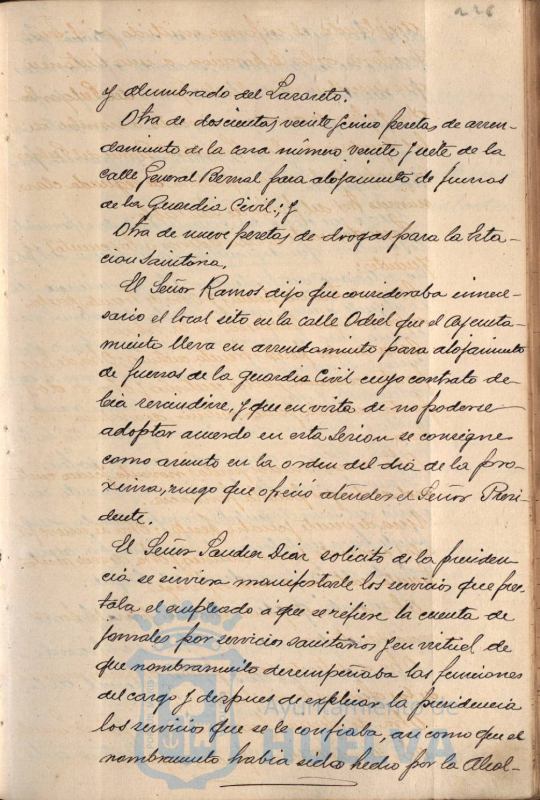 226
y alumbrado del Lazareto.
Otra de doscientas veinte y cinco pesetas de arren-
damiento de la casa número veinte y siete de la
calle General Bernal para alojamiento de fuerzas
de la Guardia Civil; y
Otra de nueve pesetas de drogas para la Esta-
cion Sanitaria.
El Señor Ramos dijo que consideraba innece-
sario el local sito en la calle Odiel que el Ayunta-
miento lleva en arrendamiento para alojamiento
de fuerzas de la guardia Civil cuyo contrato de-
bia rescindirse, y que en vista de no poderse
adoptar acuerdo en esta Sesion se consigne
como asunto en la orden del dia de la pro-
xima, ruego que ofreció atender el Señor Presi-
dente.
El Señor Sanchez Diaz solicitó de la presiden-
cia se sirviera manifestarle los servicios que pres-
taba el empleado á que se refiere la cuenta de
jornales por servicios sanitarios y en virtud de
que nombramiento desempeñaba las funciones
del cargo y despues de explicar la presidencia
los servicios que se le confiaba, asi como que el
nombramiento habia sido hecho por la Alcal-
Ayuntamiento de
HUELVA